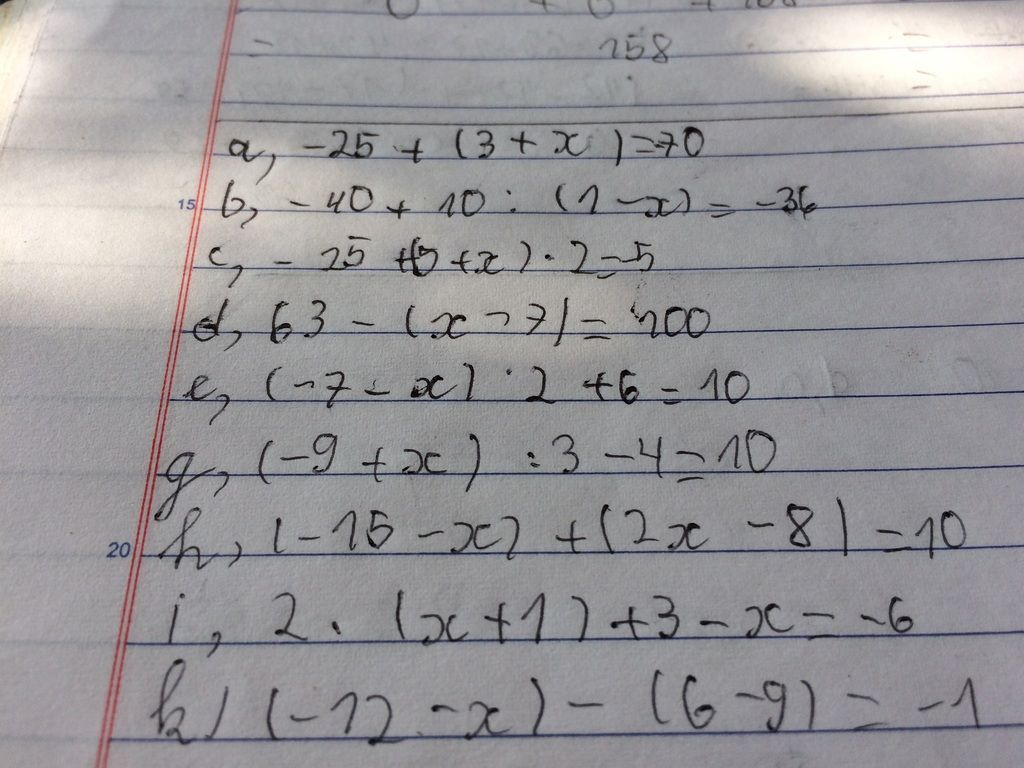 158
a, -25 + (3 + x) = 70
15
b, -40 + 10 : (1 - x) = -36
c, -25 + (5 + x) . 2 = -5
d, 63 - (x - 7) = 100
e, (-7 - x) . 2 + 6 = 10
g, (-9 + x) : 3 - 4 = 10
20
h, (-15 - x) + (2x - 8) = 10
i, 2. (x + 1) + 3 - x = -6
k) (-12 - x) - (6 - 9) = -1